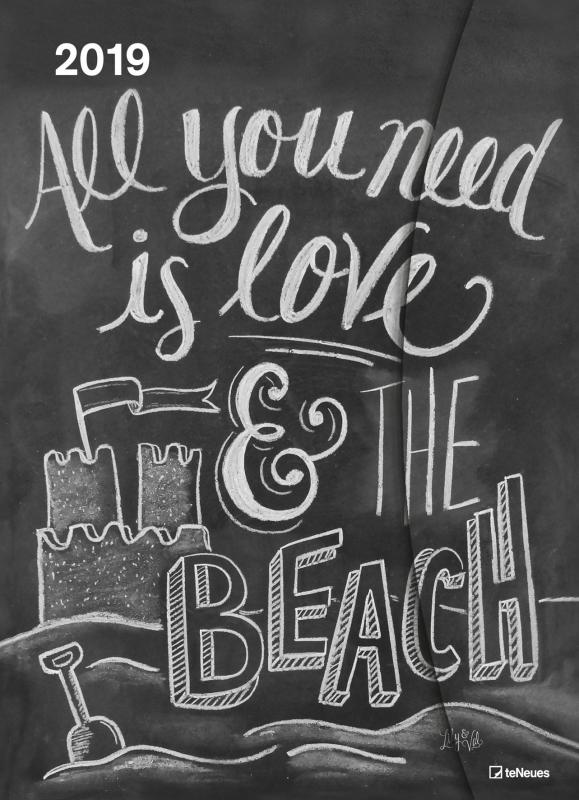 2019
All you need
is love
& THE
BEACH
Lily & Val
teNeues